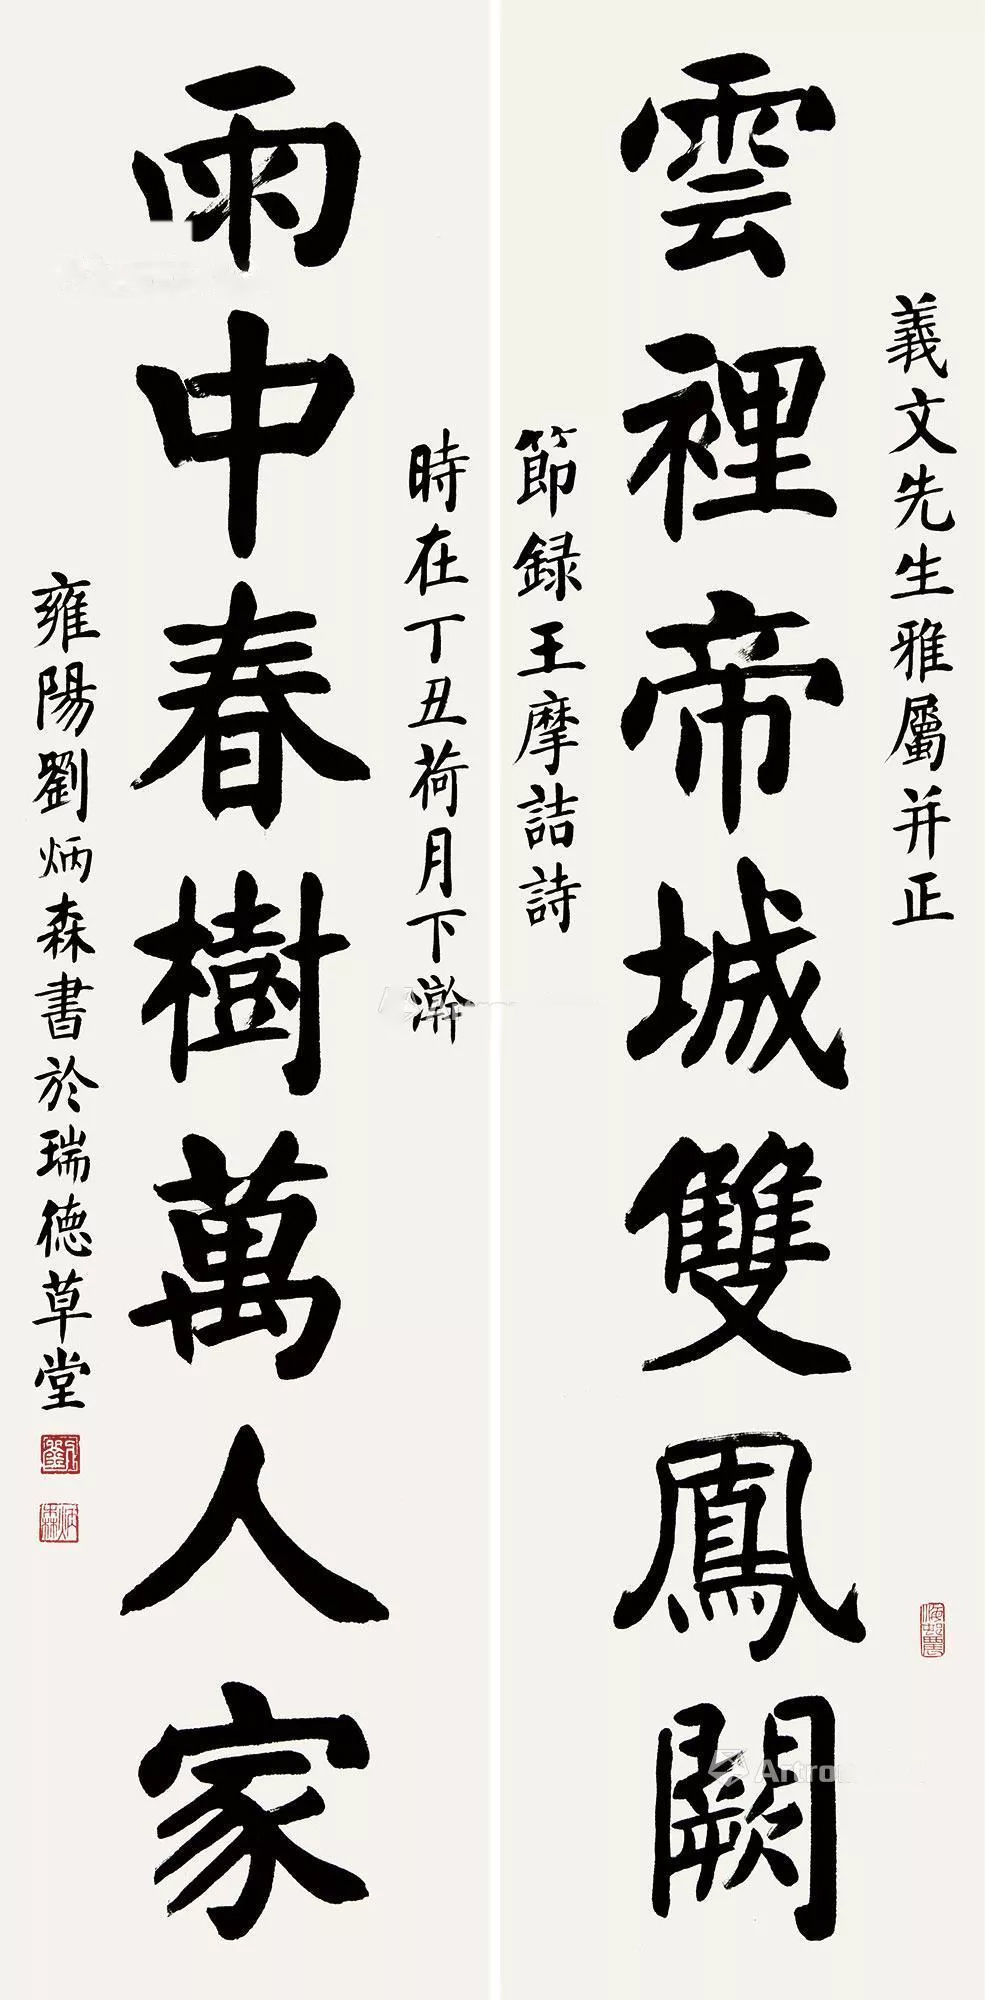 義文先生雅屬并正
雲裡帝城雙鳳闕
節録王摩詰詩
時在丁丑荷月下澣
雨中春樹萬人家
雍陽劉炳森書於瑞德草堂